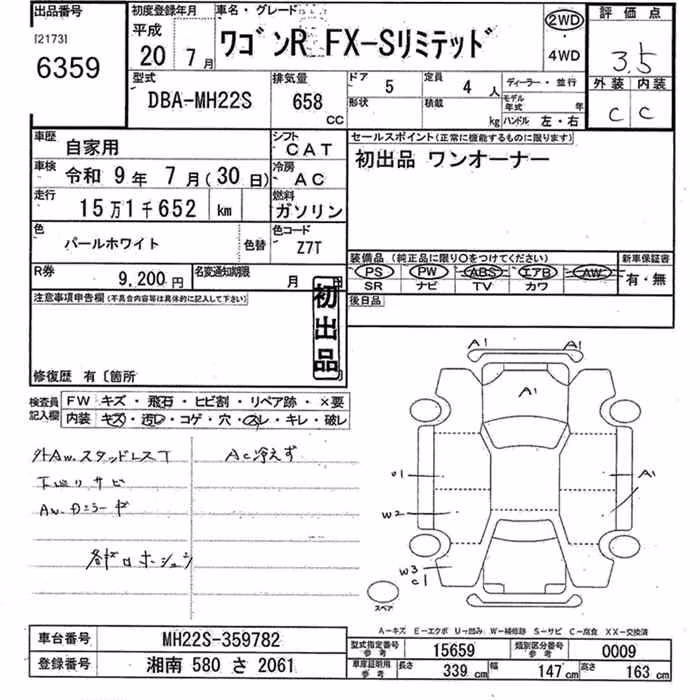 出品番号
[2173]
6359
初度登録年月
平成
20 年 7 月
車名・グレード
ワゴンR FX-Sリミテッド
2WD
・
4WD
評価点
3.5
外装 内装
C C
型式
DBA-MH22S
排気量
658 CC
ドア 5
形状
定員 4 人
積載 kg
ディーラー・並行
モデル年式 年
ハンドル 左・右
車歴 自家用
シフト CAT
車検 令和 9 年 7 月 (30 日)
冷房 AC
走行 15万1千652 km
燃料 ガソリン
色 パールホワイト 色替
色コード Z7T
R券 9,200 円
名変通知期限 月 日
セールスポイント(正常に機能するものに限ります)
初出品 ワンオーナー
装備品 (純正品に限り○をつけてください)
PS PW ABS エアB AW
SR ナビ TV カワ
新車保証書
有・無
後日品
注意事項申告欄(不具合内容等は具体的に記入して下さい)
初出品
修復歴 有〔箇所 〕
検査員記入欄
FW キズ・飛石・ヒビ割・リペア跡・×要
内装 キズ・汚レ・コゲ・穴・スレ・キレ・破レ
外AW.スタッドレスT
AC冷えず
下廻りサビ
A1 A1
A1
A1
U1
W2
W3
C1
スペア
A-キズ E-エクボ U-凹み W-補修跡 S-サビ C-腐食 XX-交換済
車台番号 MH22S-359782
登録番号 湘南 580 さ 2061
型式指定番号 参考 15659
類別区分番号 参考 0009
車庫証明用 参考 長さ 339 cm 幅 147 cm 高さ 163 cm